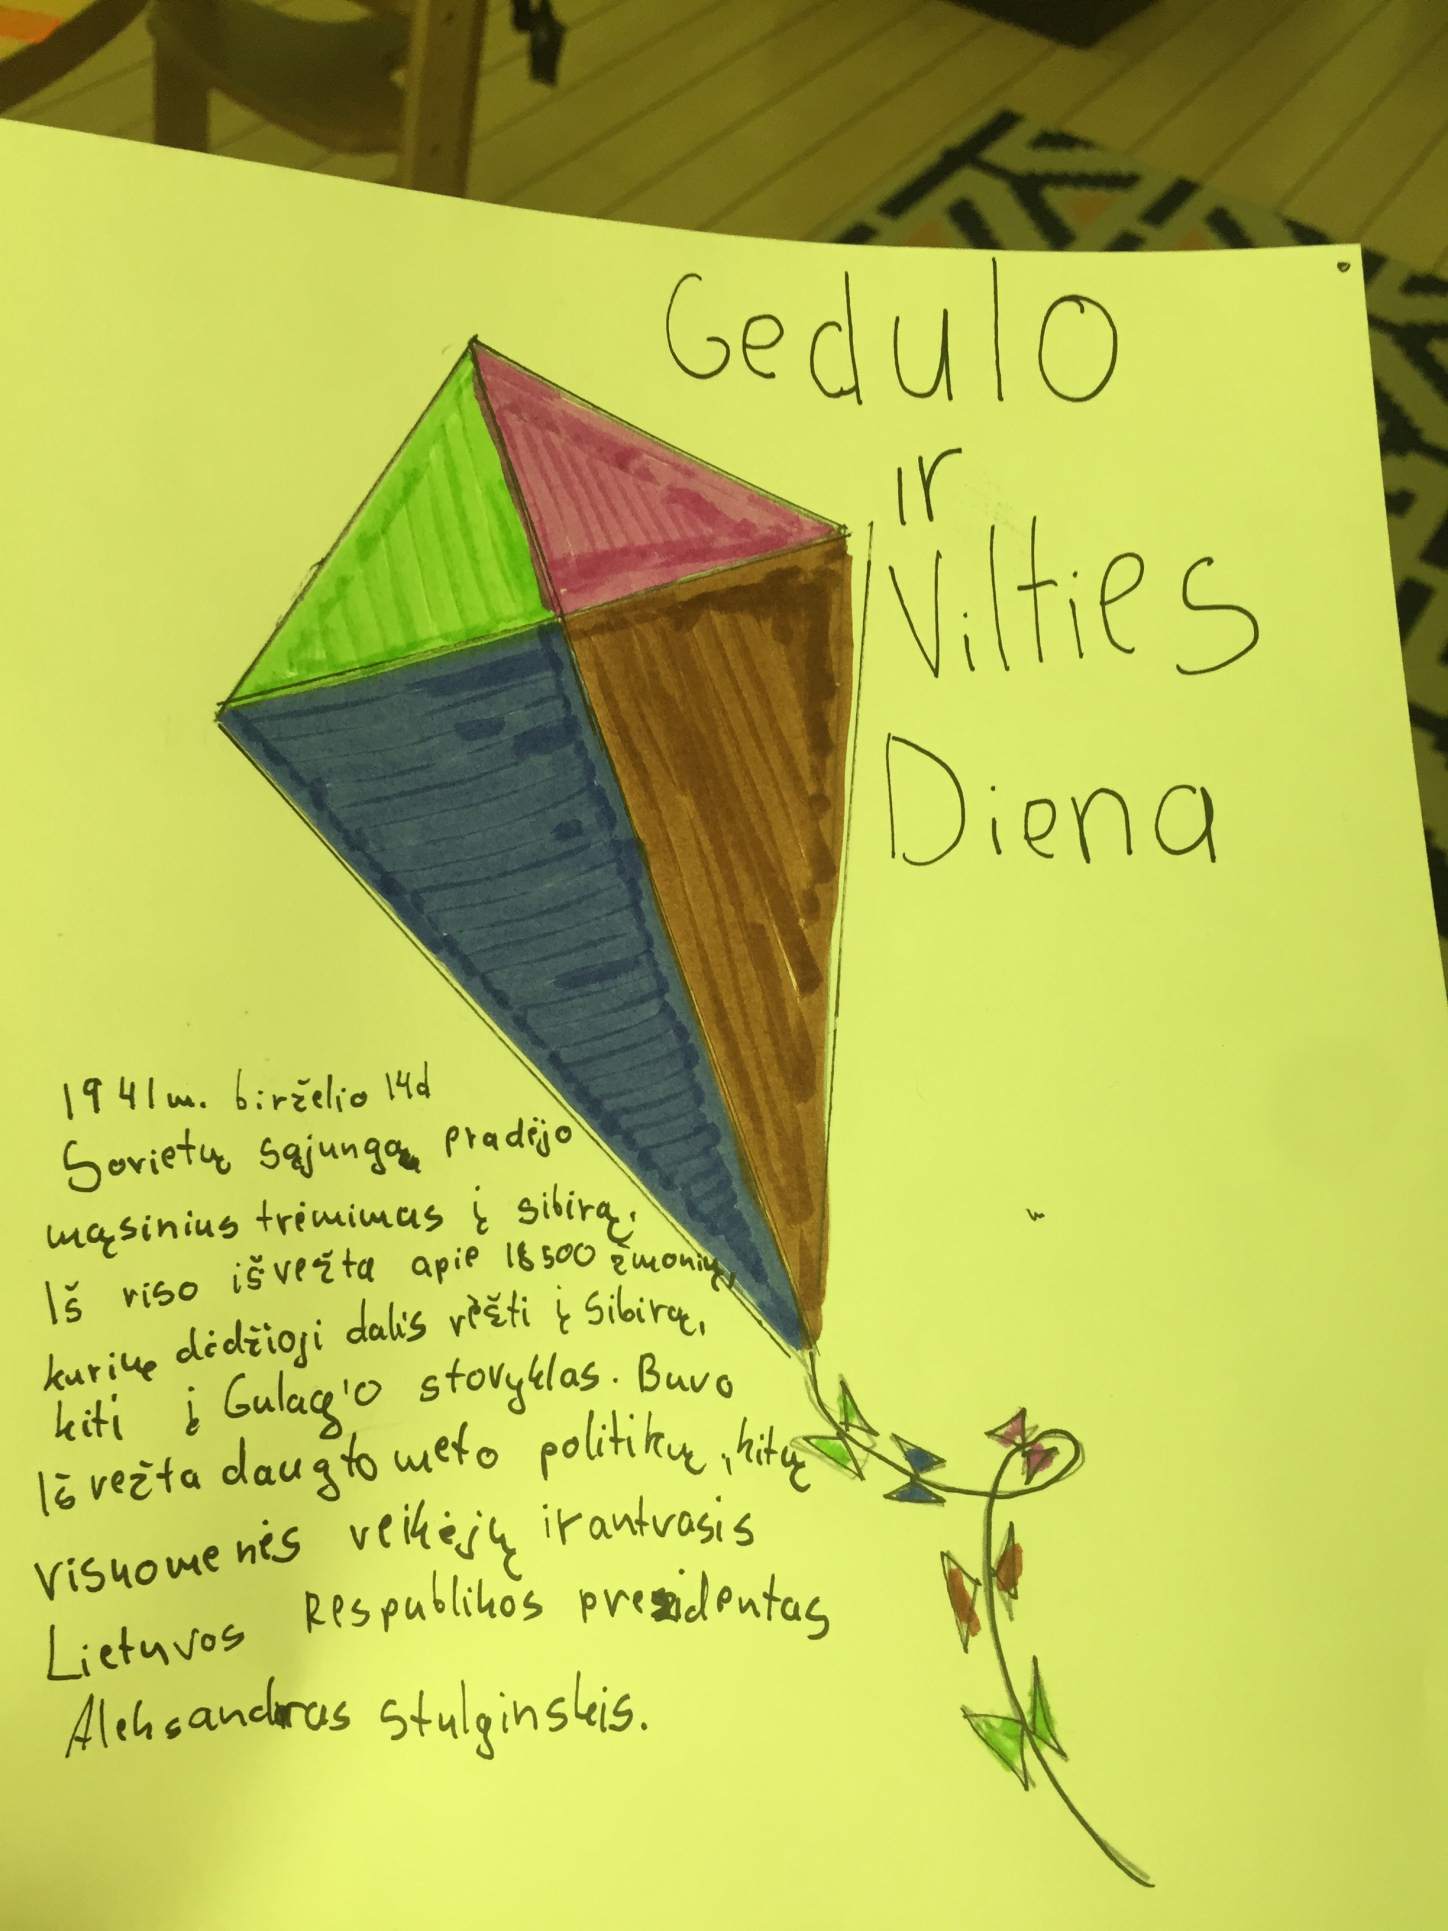 Gedulo
ir
Vilties
Diena
1941m. birželio 14d
Sovietų sąjunga pradėjo
mąsinius trėmimas į sibirą.
Iš viso išvežta apie 18500 žmonių,
kurių didžioji dalis vėžti į Sibirą,
kiti į Gulag'o stovyklas. Buvo
Išvežta daugto meto politikų, kitų
visuomenės veikėjų ir antrasis
Lietuvos Respublikos prezidentas
Aleksandras Stulginskis.